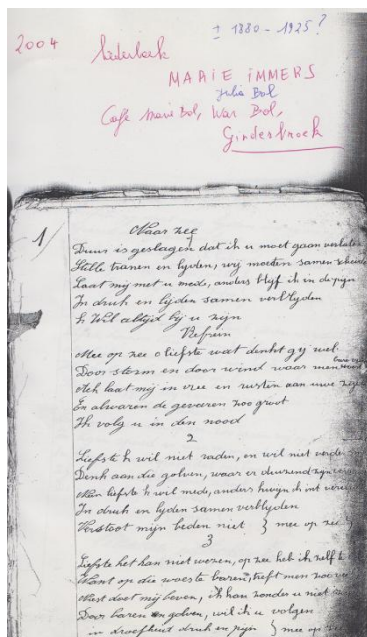 ± 1880 - 1925?
2004 liederboek
MARIE IMMERS
Julia Bol
Café Marie Bol, War Bol,
Ginderbroek
1/
Naar zee
Duur is geslagen dat ik u moet gaan verlaten
Stille tranen en lyden, wij moeten samen scheiden
Laat mij met u mede, anders blyf ik in de pijn
In druk en lyden samen verblyden
k Wil altijd bij u zijn
Refrein
Mee op zee o liefste wat denkt gij wel
Door storm en door wind waar men
Ach laat mij in vree en rusten aan uwe zij
En alwaren de gevaren zoo groot
Ik volg u in den nood
2
Liefste k wil niet raden, en wil niet
Denk aan die golven, waar er duizend zijn
Neen liefste k wil mede, anders
In druk en lyden samen verblyden
Verstoot mijn beden niet } mee op zee
3
Liefste het kan niet wezen, op zee heb ik zelf
Want op die woeste baren, heeft men
doet mij beven, ik kan zonder u niet
Door baren en golven, wil ik u volgen
in droefheid druk en pijn } mee op